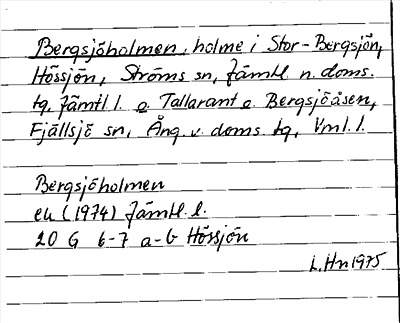 Bergsjöholmen, holme i Stor-Bergsjön,
Hössjön, Ströms sn, Jämtl. n. doms.
tg. Jämtl. l. o. Tallarant o. Bergsjöåsen,
Fjällsjö sn, Ång. v. doms. tg., Vnl. l.
Bergsjöholmen
ek (1974) Jämtl. l.
20 G 6-7 a-b Hössjön
L.Hn 1975